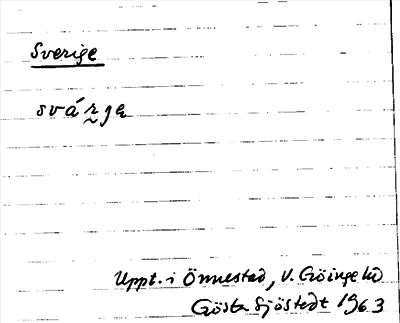 Sverige
svár̰ga
Uppt. i Önnestad, V. Göinge hd
Gösta Sjöstedt 1963